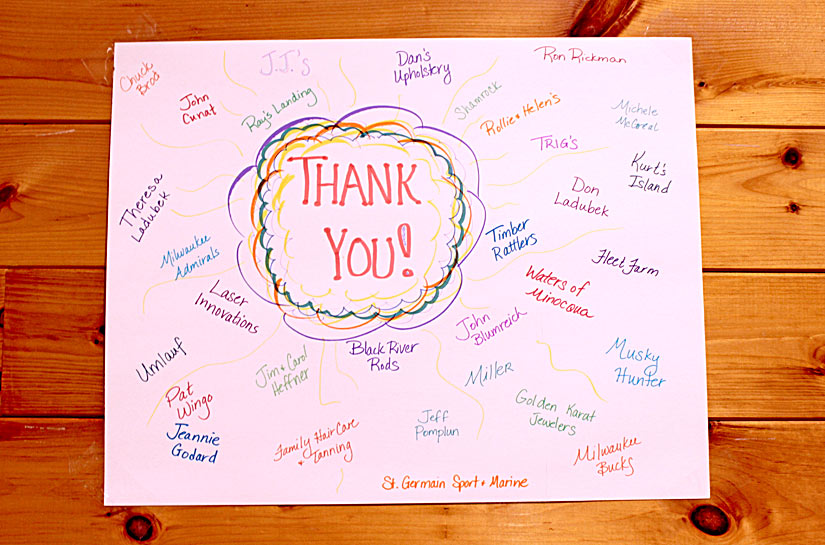 THANK
YOU!
Chuck
Brod
John
Cunat
J.J.'s
Ray's Landing
Dan's
Upholstery
Shamrock
Ron Rickman
Rollie & Helen's
Michele
McGreal
TRIG'S
Kurt's
Island
Theresa
Ladubek
Don
Ladubek
Milwaukee
Admirals
Timber
Rattlers
Fleet Farm
Laser
Innovations
Waters of
Minocqua
John
Blumreich
Umlauf
Black River
Rods
Jim & Carol
Heffner
Miller
Musky
Hunter
Pat
Wingo
Jeannie
Godard
Golden Karat
Jewelers
Family Hair Care
& Tanning
Jeff
Pomplun
Milwaukee
Bucks
St. Germain Sport & Marine